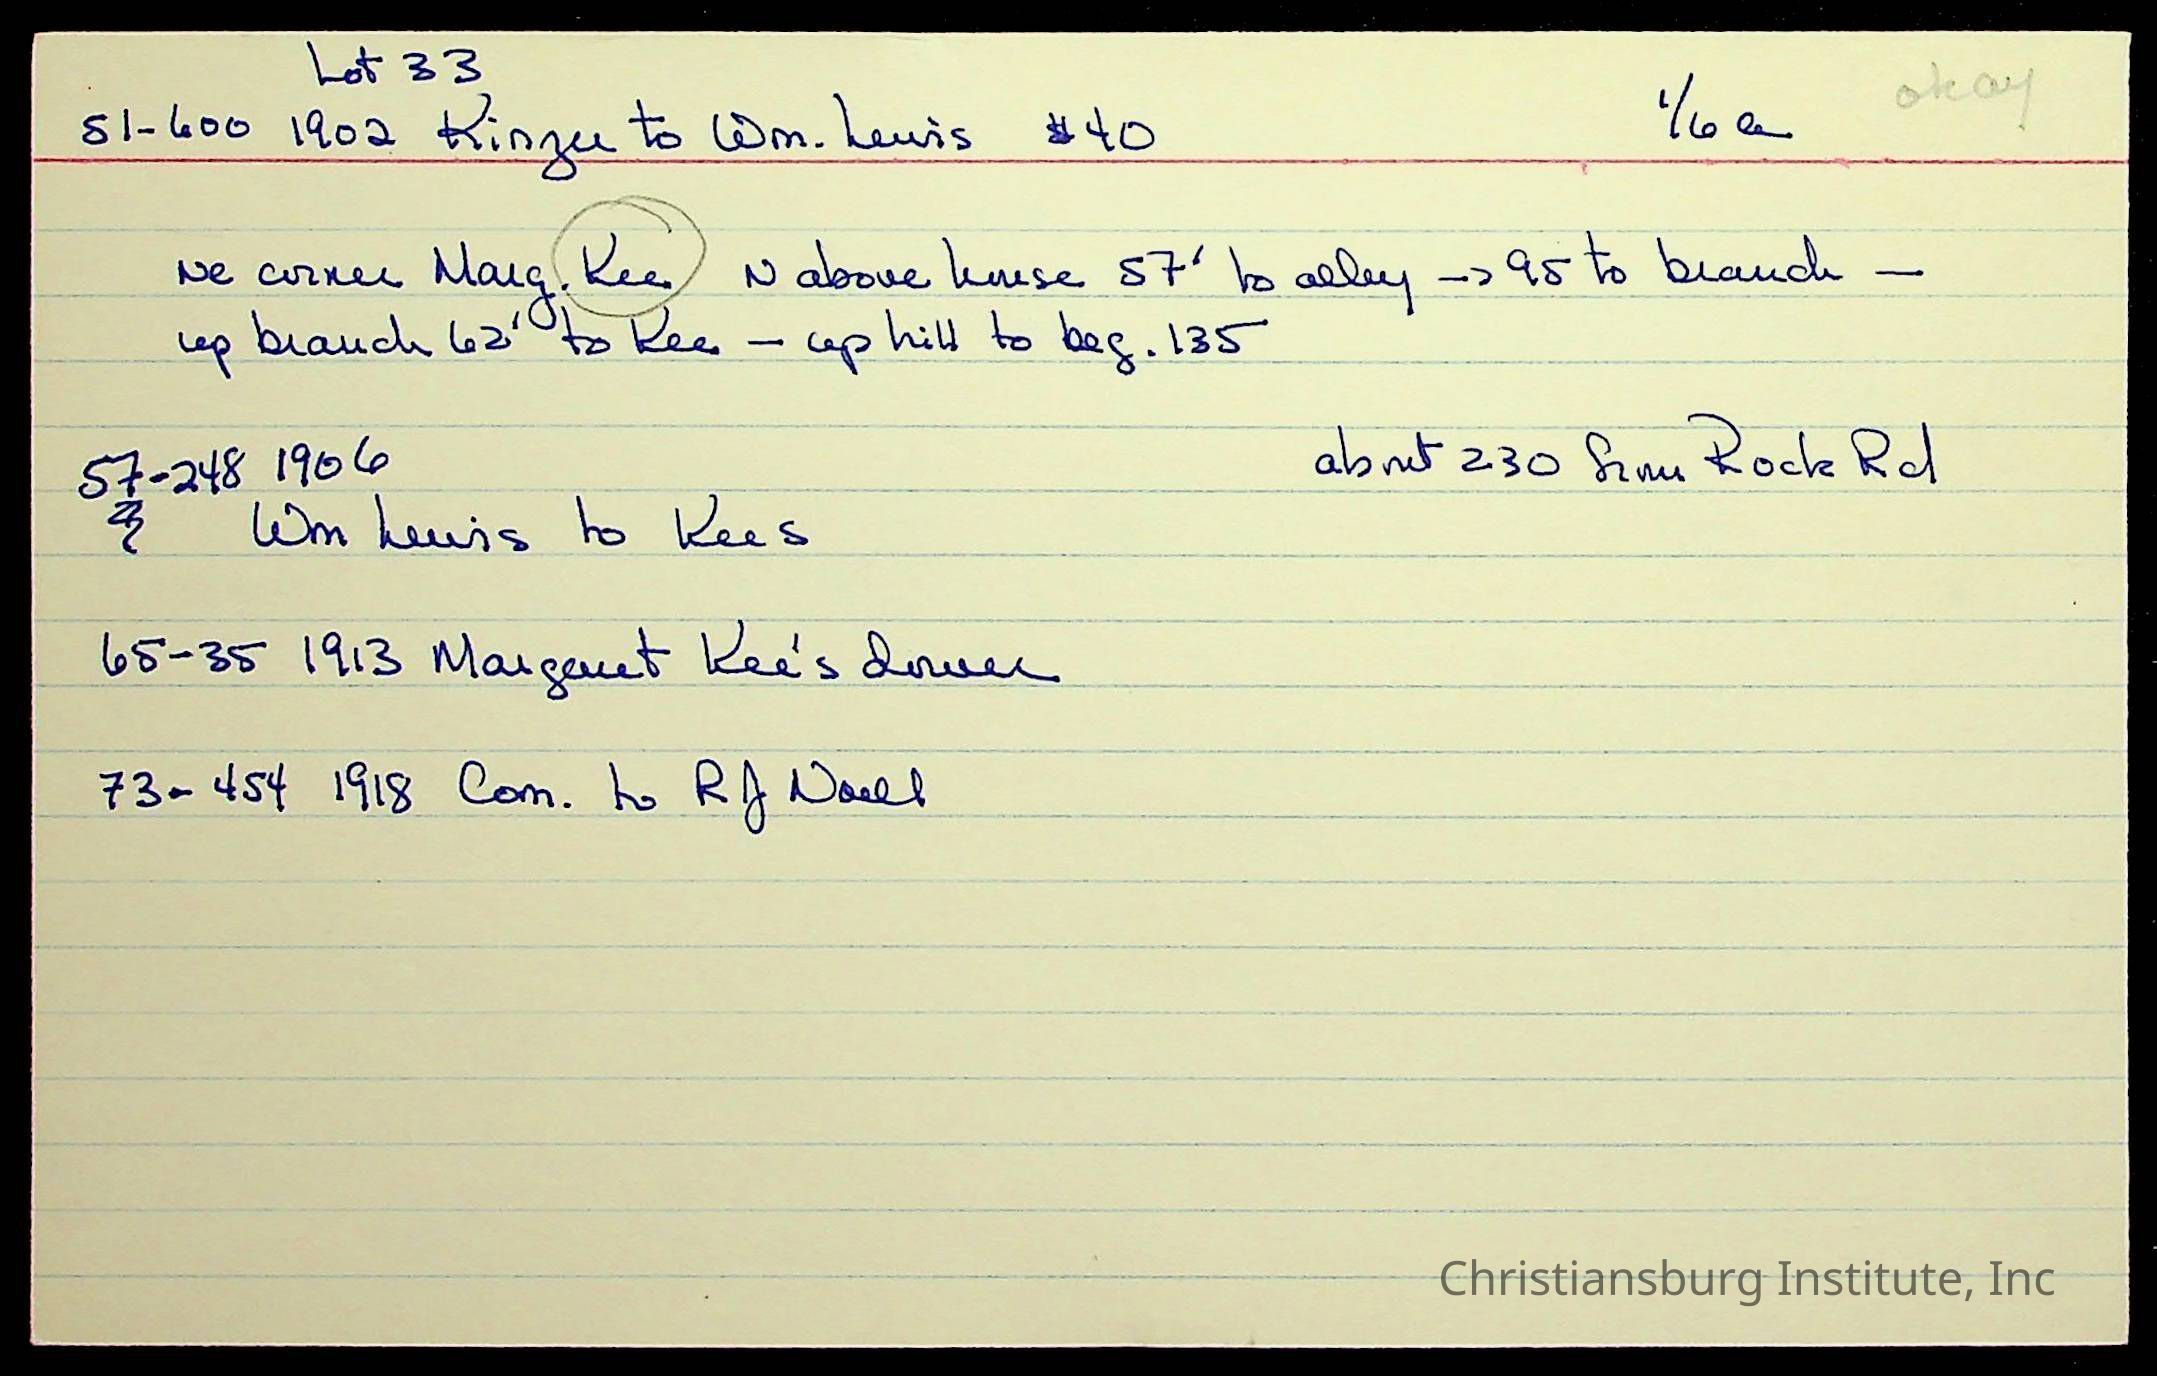 Lot 33
51-600 1902 Kinzer to Wm. Lewis $40 1/6 a okay
NE corner Marg. Kee N above house 57' to alley -> 95 to branch —
up branch 62' to Kee — up hill to beg. 135
57-248 1906 about 230 from Rock Rd
& Wm Lewis to Kees
65-35 1913 Margaret Kee's dower
73-454 1918 Com. to RJ Noell
Christiansburg Institute, Inc